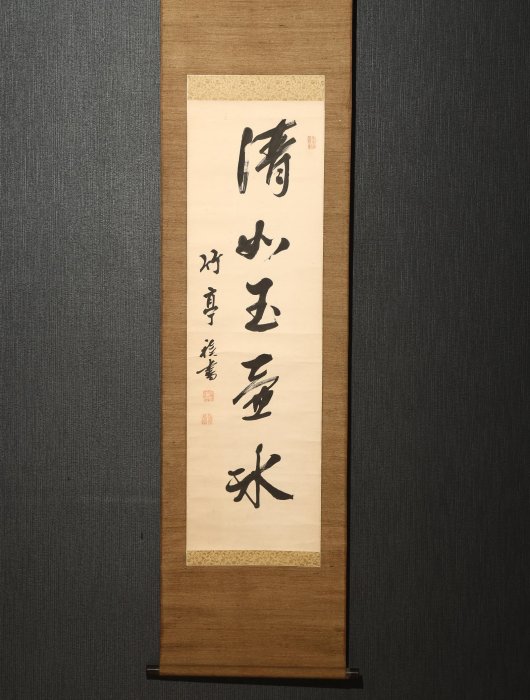 清如玉壺冰
竹亭穆書